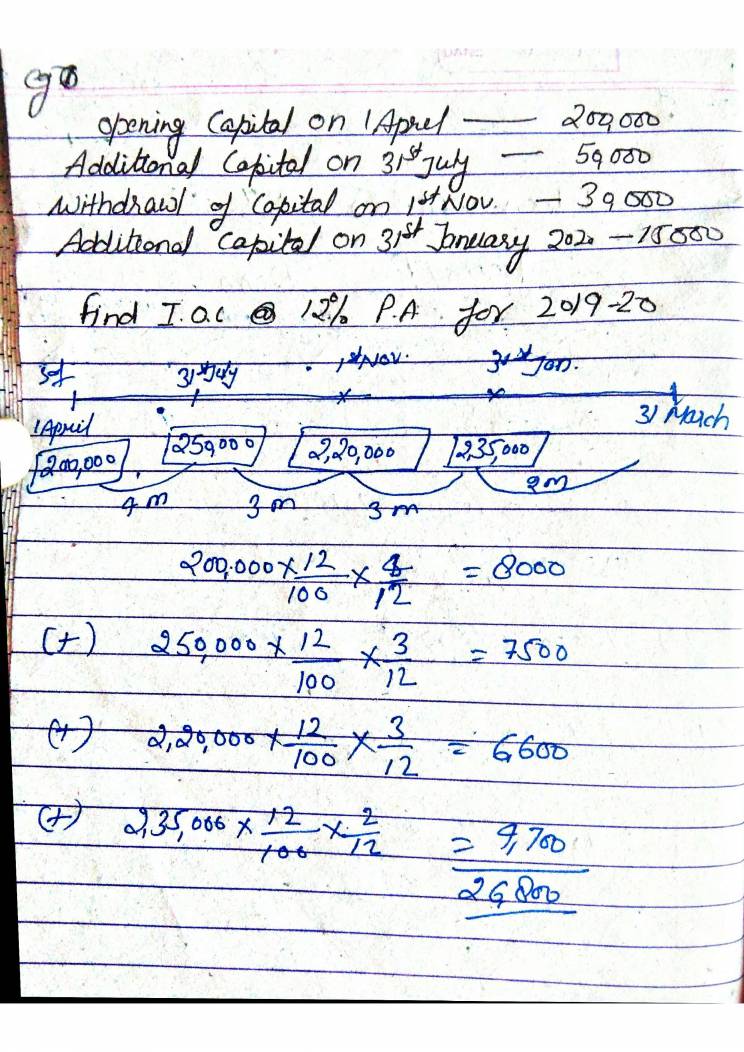 eg
Opening Capital on 1 Aprel — 200,000
Additional Capital on 31st July — 50,000
Withdrawl of Capital on 1st Nov. — 30,000
Additional Capital on 31st January 2020 — 15000
find I.O.C @ 12% P.A for 2019-20
31st July 1st Nov. 31st Jan.
1 April 31 March
200,000 250,000 2,20,000 2,35,000
4m 3m 3m 2m
200,000 × 12/100 × 4/12 = 8000
(+) 250,000 × 12/100 × 3/12 = 7500
(+) 2,20,000 × 12/100 × 3/12 = 6,600
(+) 2,35,000 × 12/100 × 2/12 = 4,700
26,800